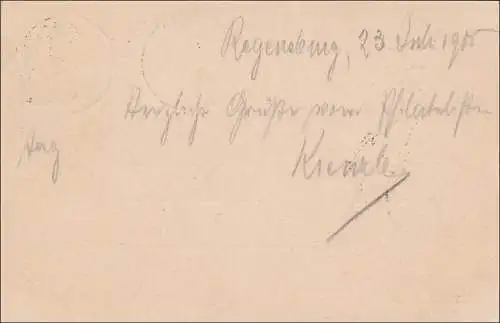 Regensburg, 23 Juli 1905
Herzliche Grüße vom Philatelisten